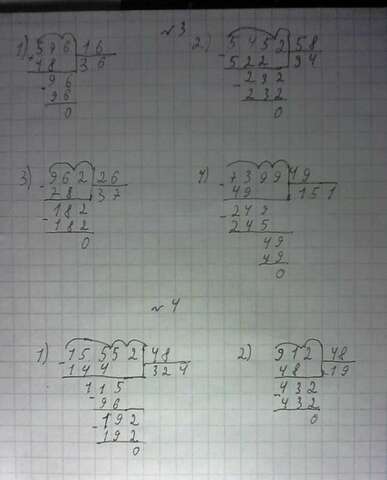 №3
1) 576 | 16
- 48 | 36
96
- 96
0
2) 5452 | 58
- 522 | 94
232
- 232
0
3) 962 | 26
- 78 | 37
182
- 182
0
4) 7399 | 49
- 49 | 151
249
- 245
49
49
0
№4
1) 15552 | 48
- 144 | 324
115
- 96
192
- 192
0
2) 912 | 48
48 | 19
432
- 432
0